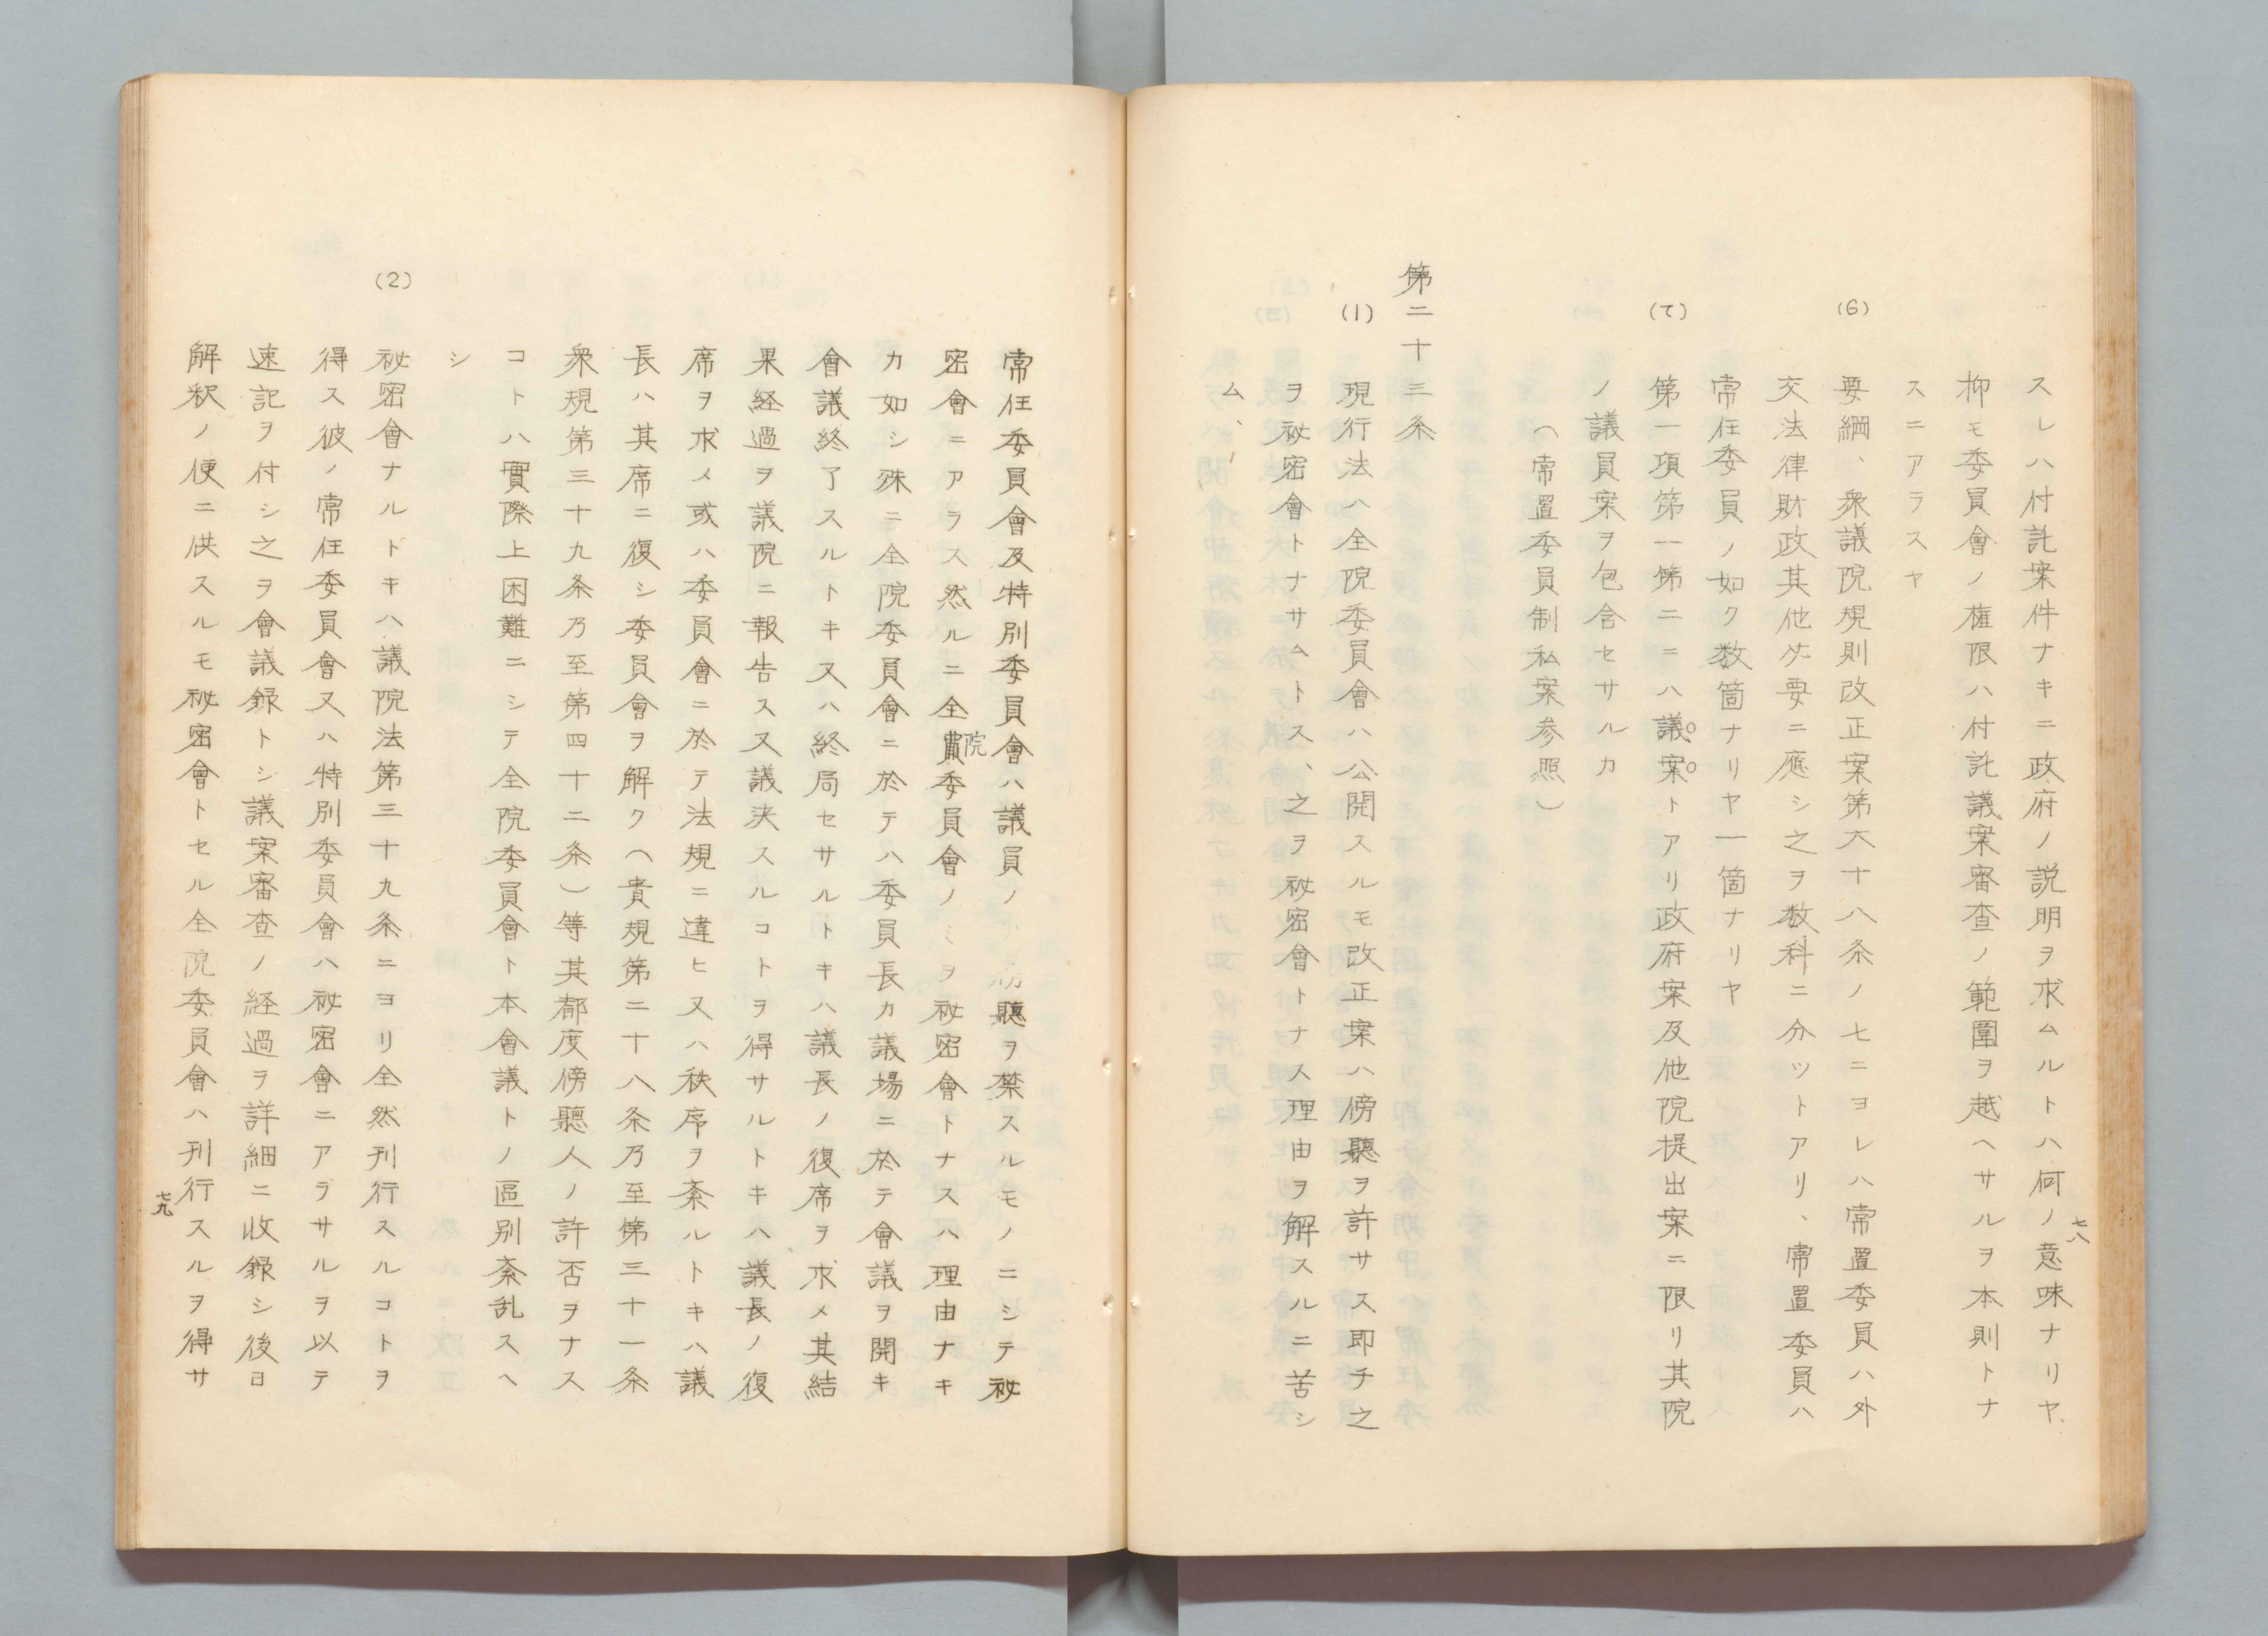 スレハ付託案件ナキニ政府ノ説明ヲ求ムルトハ何ノ意味ナリヤ、
抑モ委員會ノ権限ハ付託議案審査ノ範圍ヲ越ヘサルヲ本則トナ
スニアラスヤ
(6)
要綱、衆議院規則改正案第六十八条ノ七ニヨレハ常置委員ハ外
交法律財政其他必要ニ應シ之ヲ数科ニ分ツトアリ、常置委員ハ
常任委員ノ如ク数箇ナリヤ一箇ナリヤ
(7)
第一項第一第二ニハ議案トアリ政府案及他院提出案ニ限リ其院
ノ議員案ヲ包含セサルカ
(常置委員制私案参照)
第二十三条
(1)
現行法ハ全院委員會ハ公開スルモ改正案ハ傍聽ヲ許サス即チ之
ヲ祕密會トナサムトス、之ヲ祕密會トナス理由ヲ解スルニ苦シ
ム、
七八
常任委員會及特別委員會ハ議員ノ傍聽ヲ禁スルモノニシテ祕
密會ニアラス然ルニ全院委員會ノミヲ祕密會トナスハ理由ナキ
カ如シ殊ニ全院委員會ニ於テハ委員長カ議場ニ於テ會議ヲ開キ
會議終了スルトキ又ハ終局セサルトキハ議長ノ復席ヲ求メ其結
果経過ヲ議院ニ報告ス又議決スルコトヲ得サルトキハ議長ノ復
席ヲ求メ或ハ委員會ニ於テ法規ニ違ヒ又ハ秩序ヲ紊ルトキハ議
長ハ其席ニ復シ委員會ヲ解ク(貴規第二十八条乃至第三十一条
衆規第三十九条乃至第四十二条)等其都度傍聽人ノ許否ヲナス
コトハ實際上困難ニシテ全院委員會ト本會議トノ區別紊乱スヘ
シ
(2)
祕密會ナルトキハ議院法第三十九条ニヨリ全然刊行スルコトヲ
得ス彼ノ常任委員會又ハ特別委員會ハ祕密會ニアラサルヲ以テ
速記ヲ付シ之ヲ會議録トシ議案審査ノ経過ヲ詳細ニ收録シ後日
解釈ノ便ニ供スルモ祕密會トセル全院委員會ハ刊行スルヲ得サ
七九